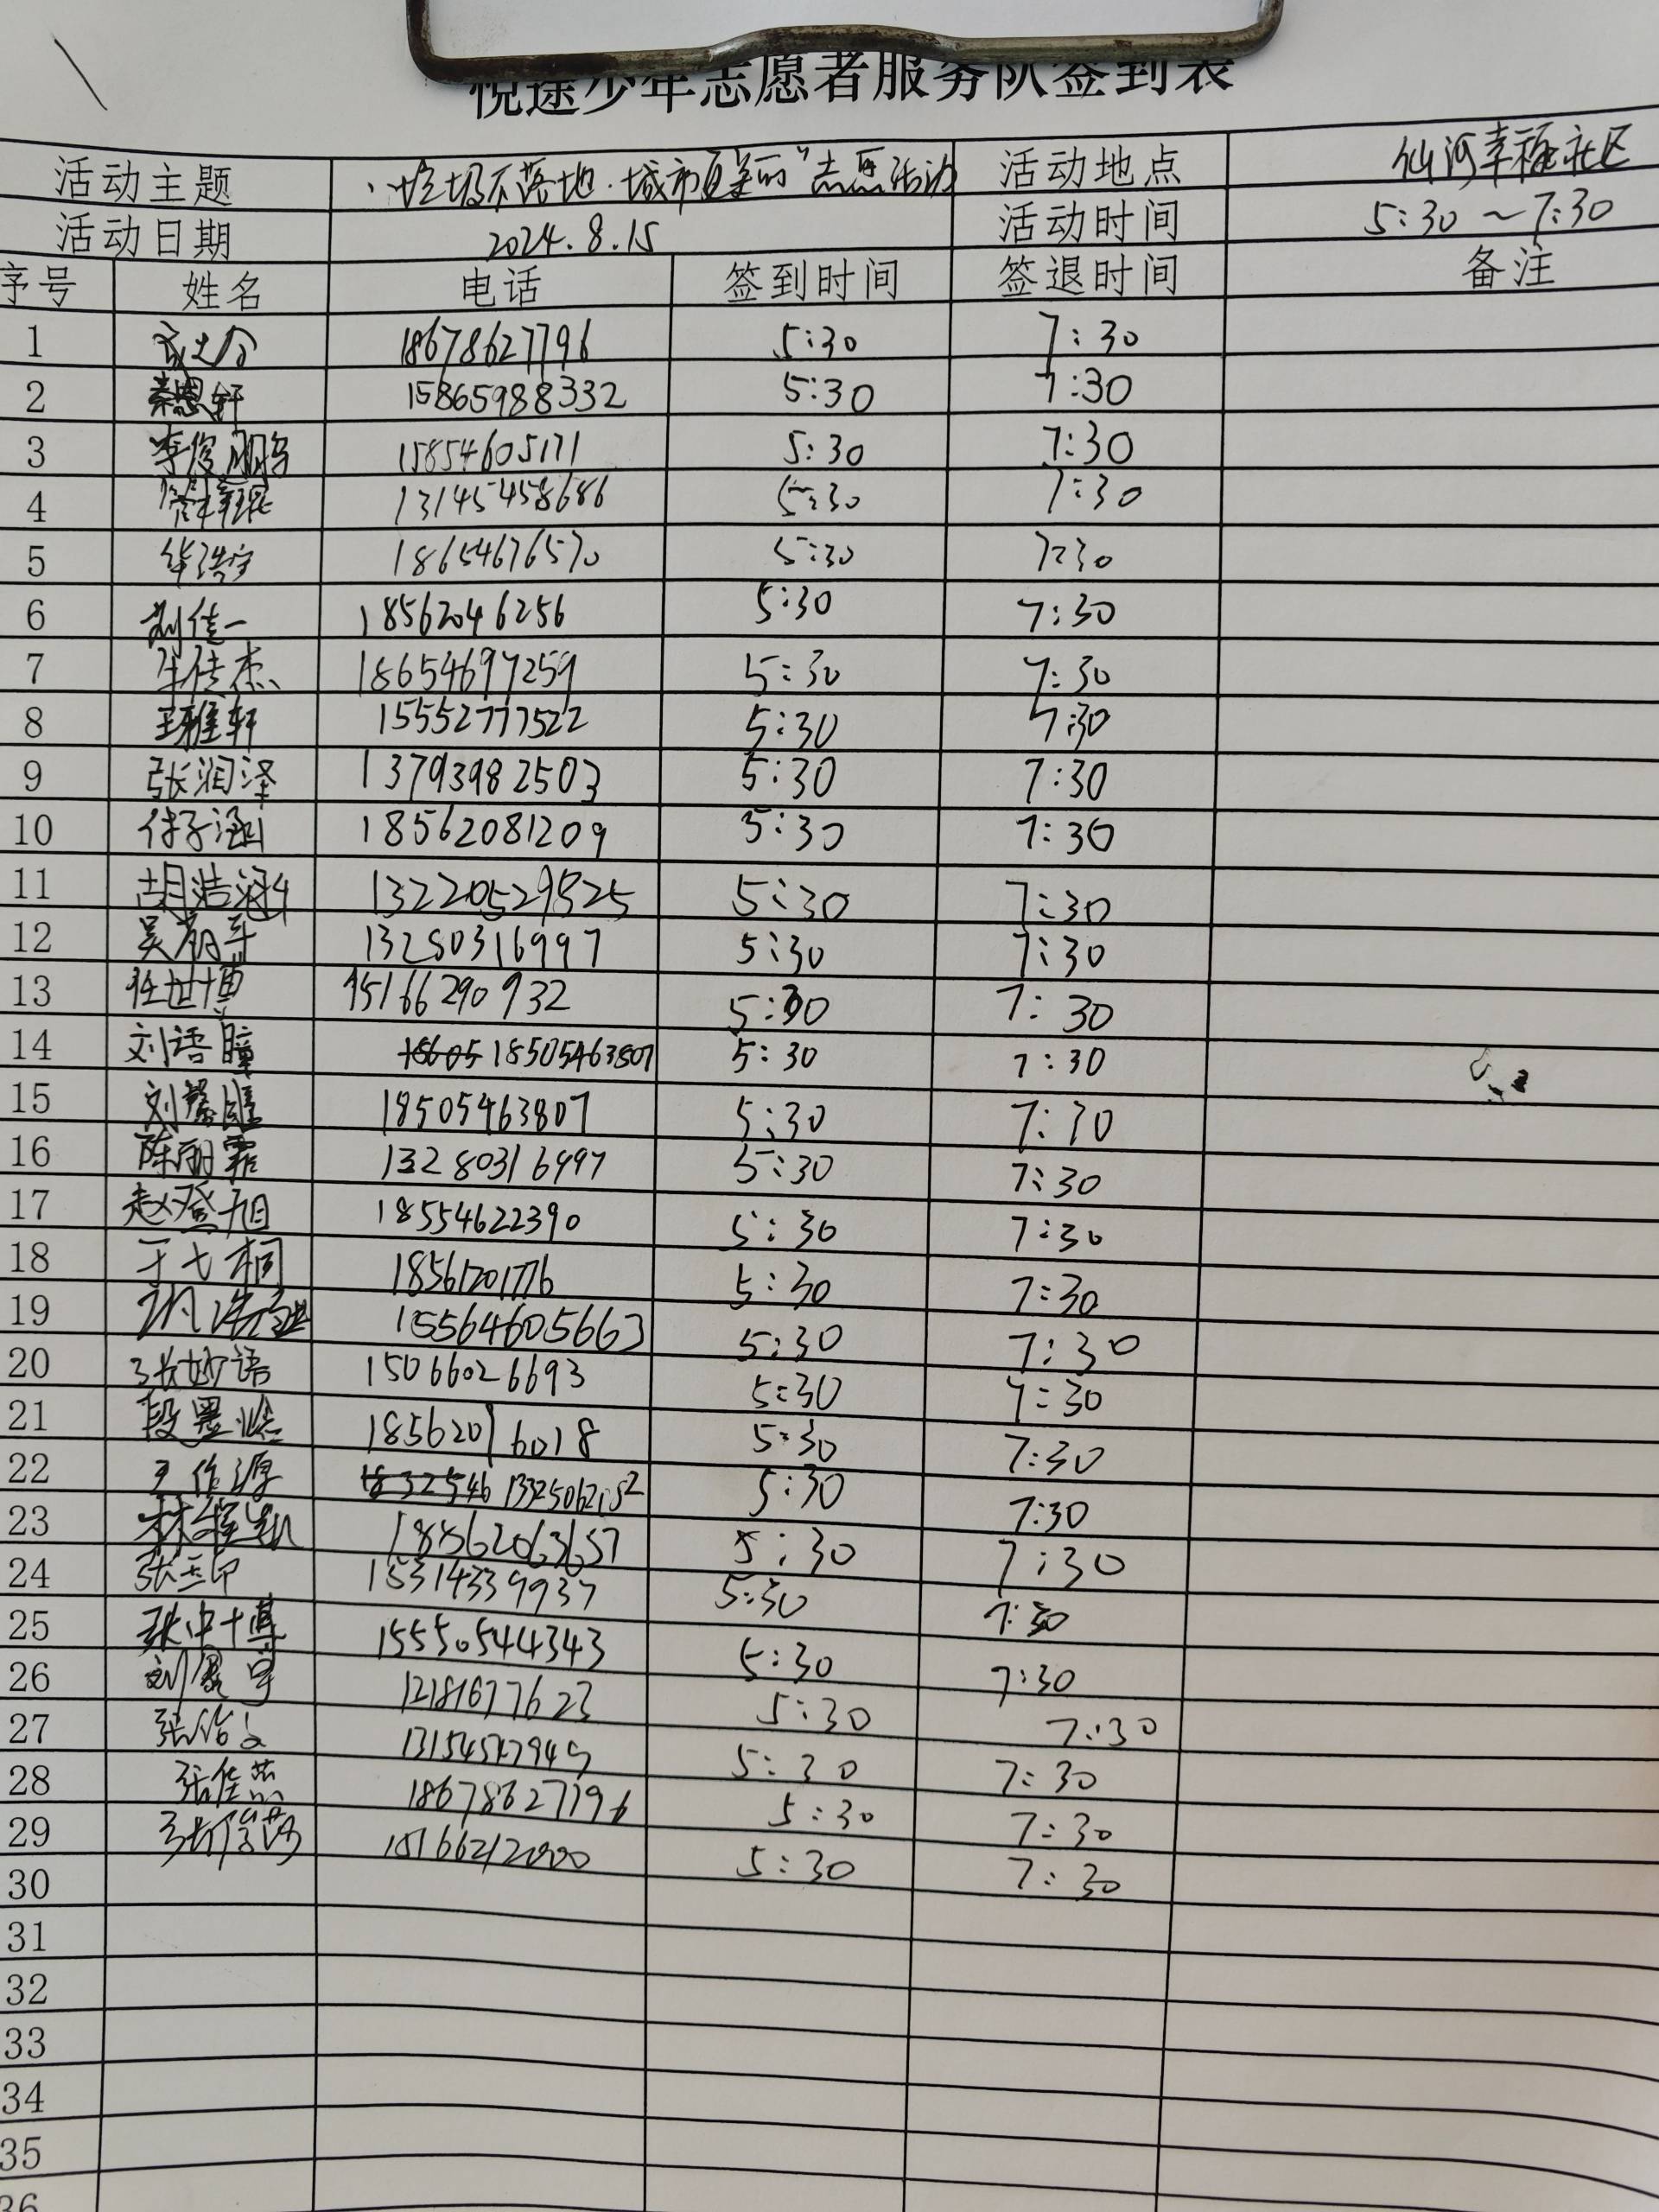 悦途少年志愿者服务队签到表
活动主题 "垃圾不落地·城市更美丽"志愿活动 活动地点 仙河幸福社区
活动日期 2024.8.15 活动时间 5:30～7:30
序号 姓名 电话 签到时间 签退时间 备注
1 18678627796 5:30 7:30
2 秦恩轩 15865988332 5:30 7:30
3 李俊鹏 15854605171 5:30 7:30
4 13145458686 5:30 7:30
5 华浩宇 18654676570 5:30 7:30
6 刘佳一 18562046256 5:30 7:30
7 牛佳杰 18654697259 5:30 7:30
8 王雅轩 15552777522 5:30 7:30
9 张润泽 13793982503 5:30 7:30
10 任子涵 18562081209 5:30 7:30
11 胡浩涵 13220529525 5:30 7:30
12 吴 13280316997 5:30 7:30
13 任世博 15166290932 5:30 7:30
14 刘语瞳 18505463807 5:30 7:30
15 刘馨瞳 18505463807 5:30 7:30
16 陈丽霏 13280316997 5:30 7:30
17 赵登旭 18554622390 5:30 7:30
18 于七桐 18561201776 5:30 7:30
19 15564605663 5:30 7:30
20 张妙语 15066026693 5:30 7:30
21 段墨 18562016018 5:30 7:30
22 王作源 5:30 7:30
23 林 18562063657 5:30 7:30
24 张 15314339937 5:30 7:30
25 张中博 15550544343 5:30 7:30
26 刘 12181677623 5:30 7:30
27 张 5:30 7:30
28 张佳 18678627796 5:30 7:30
29 张 15166212000 5:30 7:30
30
31
32
33
34
35
36